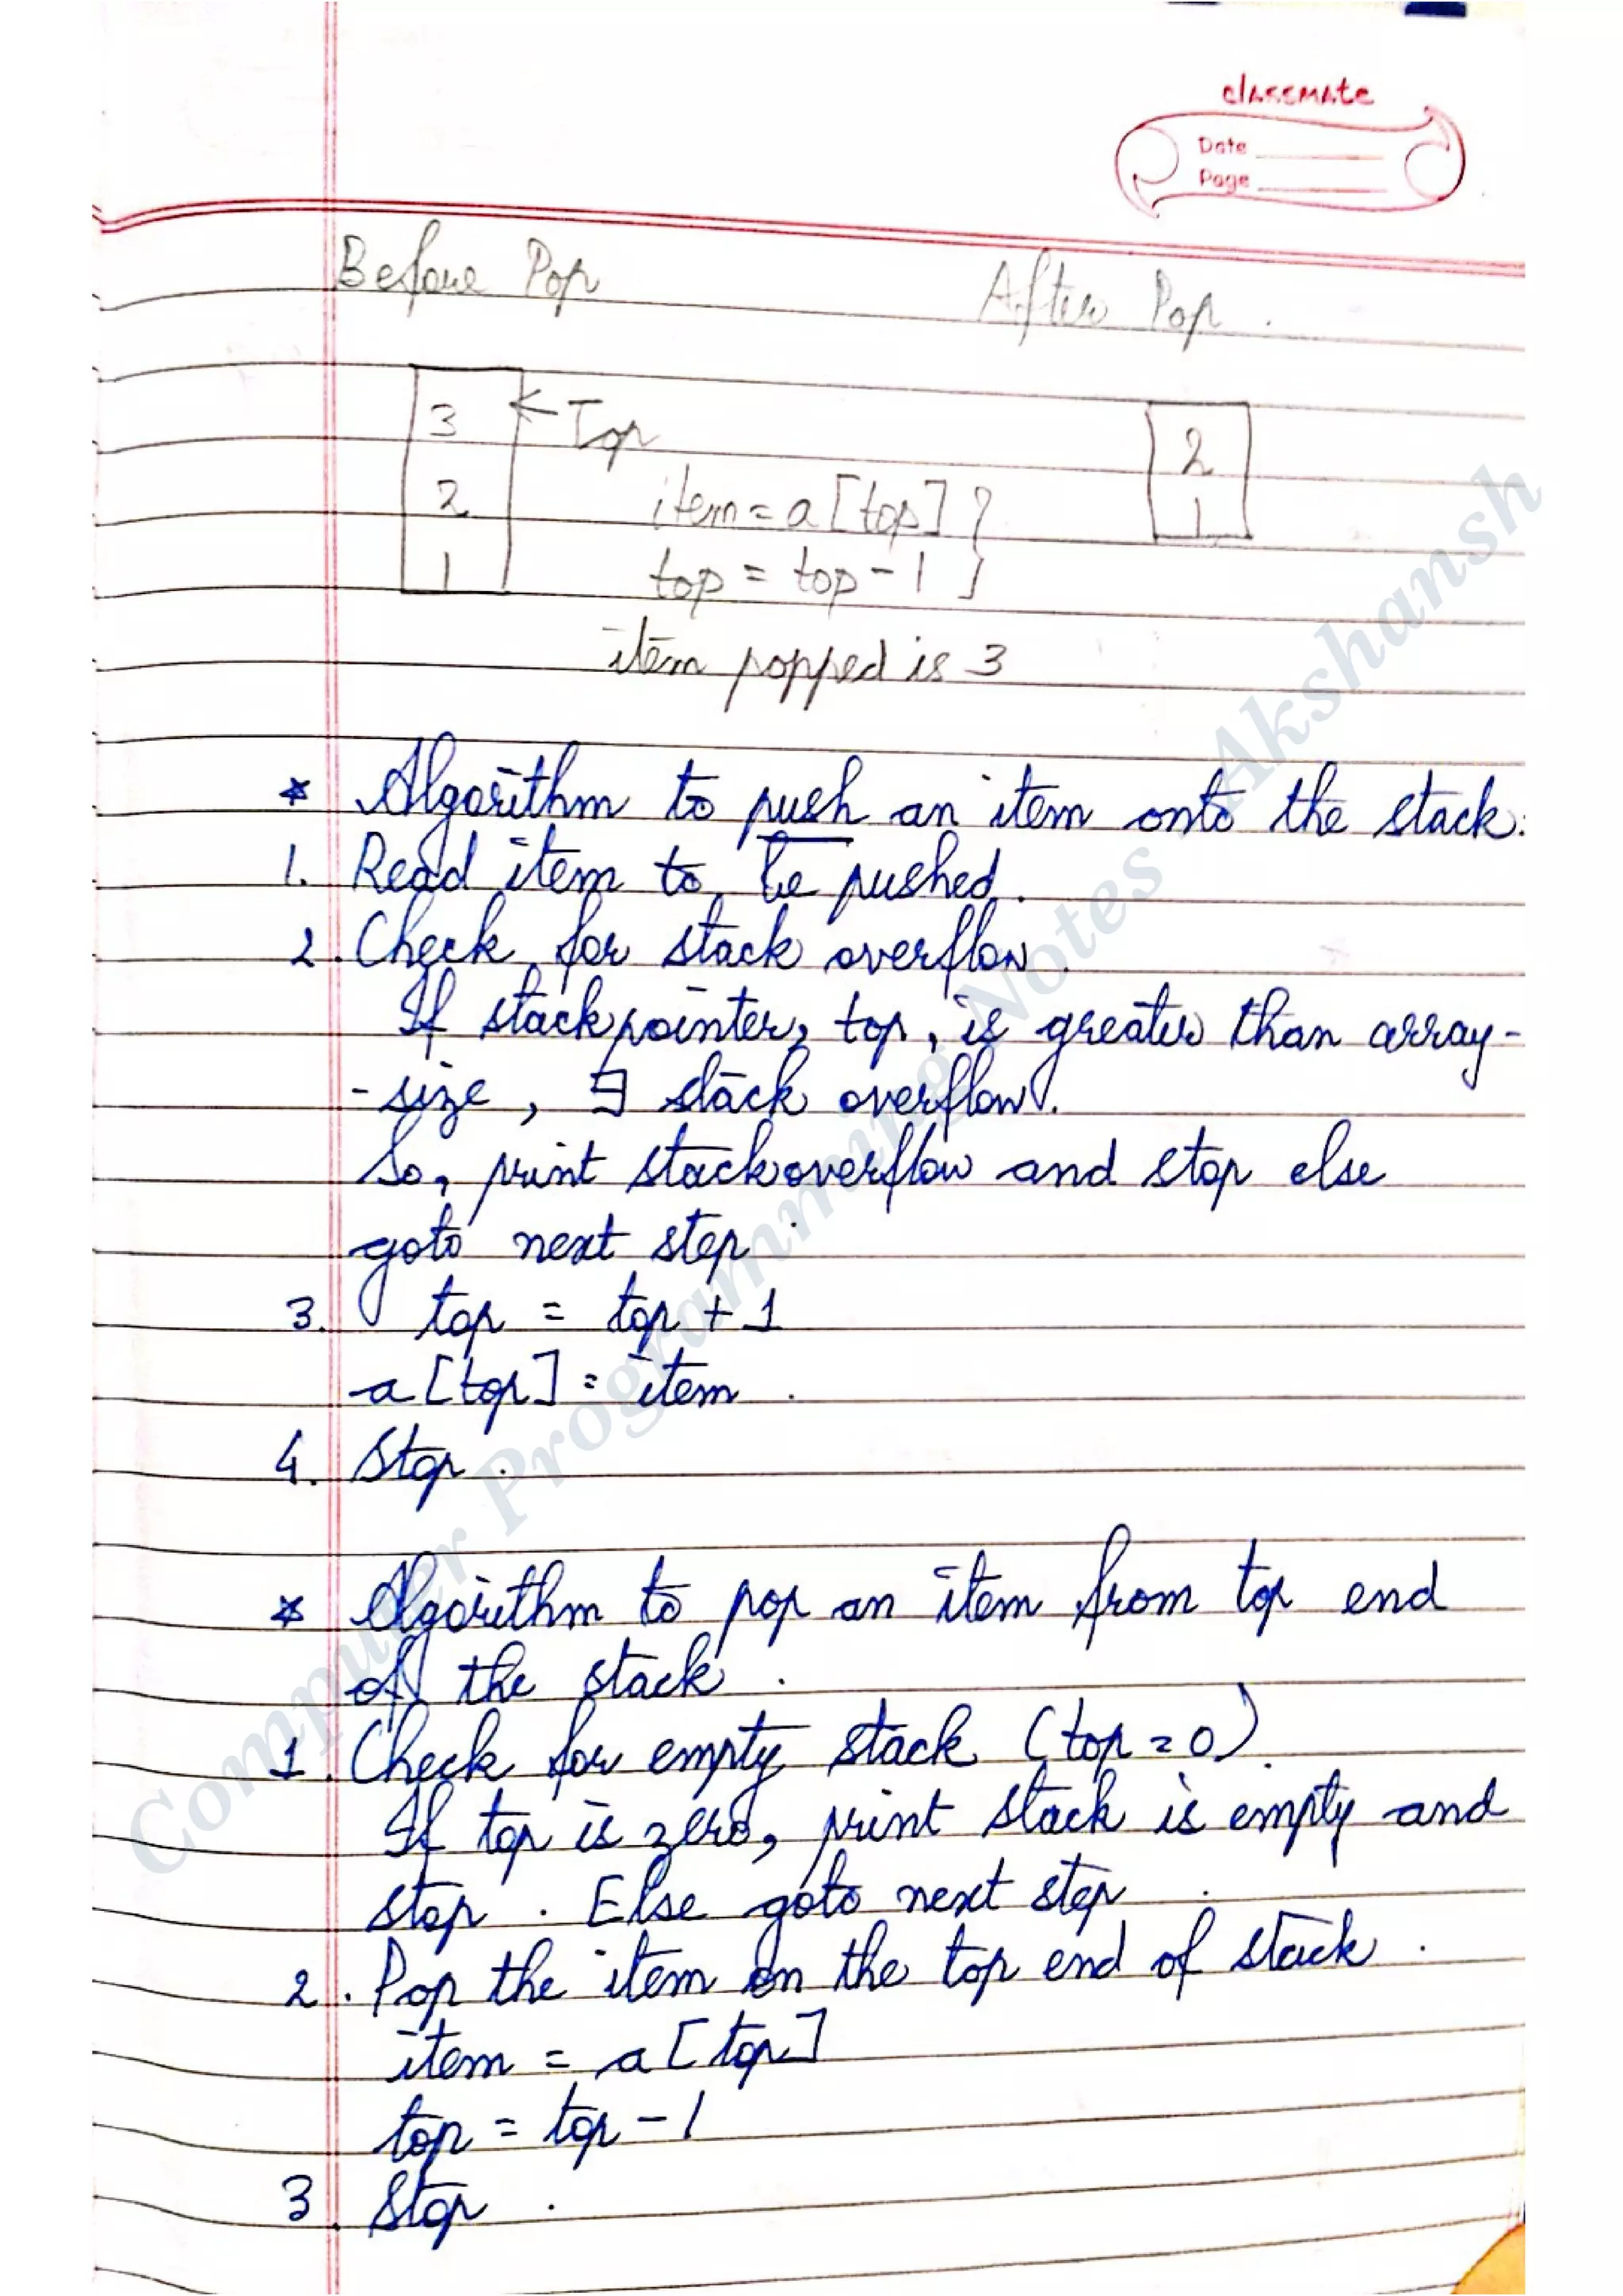 classmate
Date
Page
Before Pop
After Pop.
3 ← Top
2
1
item = a[top] }
top = top - 1
2
1
item popped is 3
* Algorithm to push an item onto the stack:
1. Read item to be pushed.
2. Check for stack overflow.
If stackpointer, top, is greater than array-
- size, ∃ stack overflow.
So, print stackoverflow and stop else
goto next step.
3. top = top + 1
a[top] = item.
4. Stop.
* Algorithm to pop an item from top end
of the stack.
1. Check for empty stack (top = 0).
If top is zero, print stack is empty and
stop. Else goto next step.
2. Pop the item on the top end of stack.
item = a[top]
top = top - 1
3. Stop.
Computer Programming Notes Akshansh